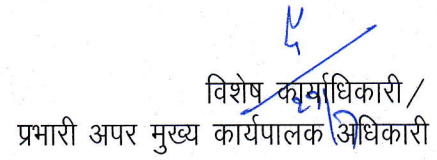 विशेष कार्याधिकारी /
प्रभारी अपर मुख्य कार्यपालक अधिकारी